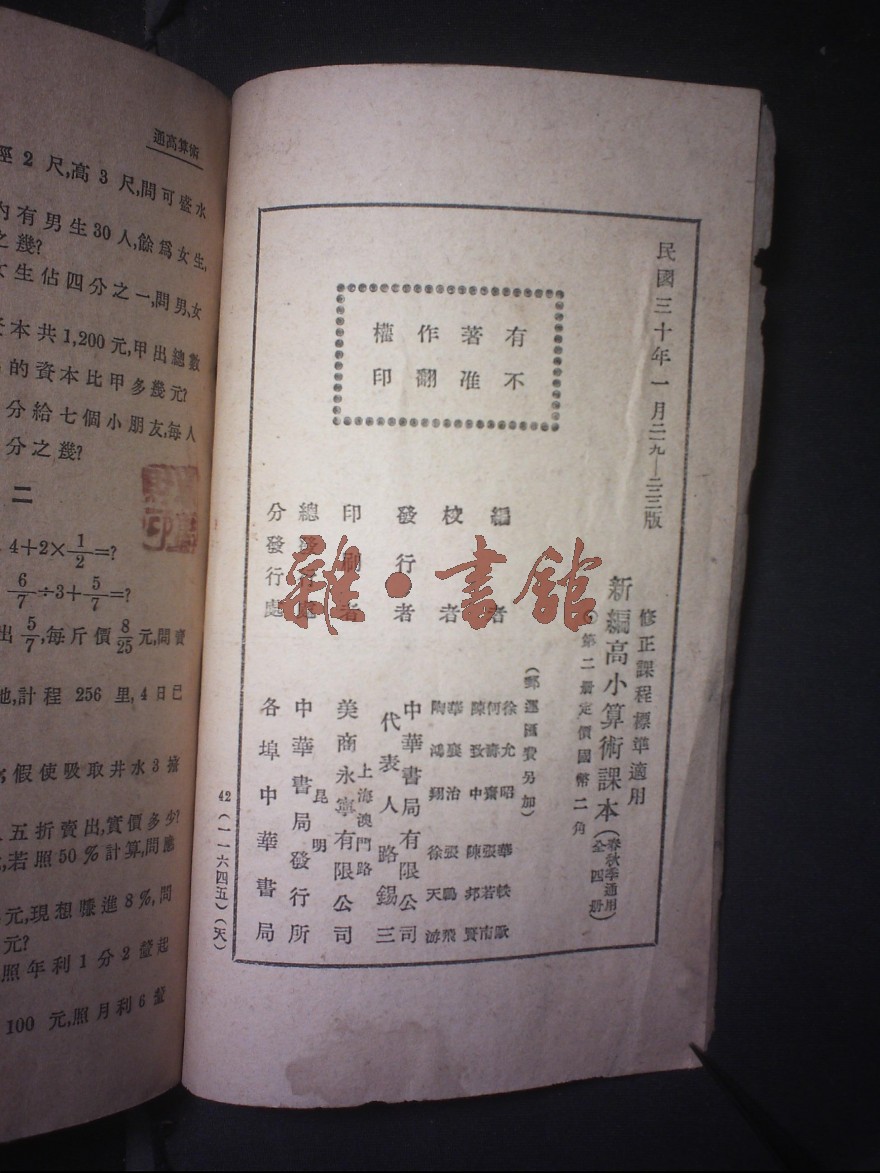 通高算術
徑 2 尺,高 3 尺,問可盛水
內有男生30人,餘爲女生,
之幾?
女生佔四分之一,問男,女
資本共1,200元,甲出總數
的資本比甲多幾元?
分給七個小朋友,每人
分之幾?
二
4+2×1/2=?
6/7÷3+5/7=?
出5/7,每斤價8/25元,問賣
地,計程 256 里,4日已
假使吸取井水3
五折賣出,實價多少?
若照50%計算,問應
元,現想賺進8%,問
元?
照年利1分2釐起
100 元,照月利6釐
民國三十年一月二九—三三版
有不
著准
作翻
權印
修正課程標準適用
新編高小算術課本(春秋季通用 全四册)
第二册定價國幣二角
(郵運匯費另加)
編者 徐允昭 華軼歐 何壽齋 張若南 陳致中 陳邦賢
校者 華襄治 張鵬飛 陶鴻翔 徐天游
發行者 中華書局有限公司 代表人路錫三
印刷者 上海澳門路 美商永寧有限公司
總發行處 昆明 中華書局發行所
分發行處 各埠中華書局
42(一一六四五)(天)
雜·書館